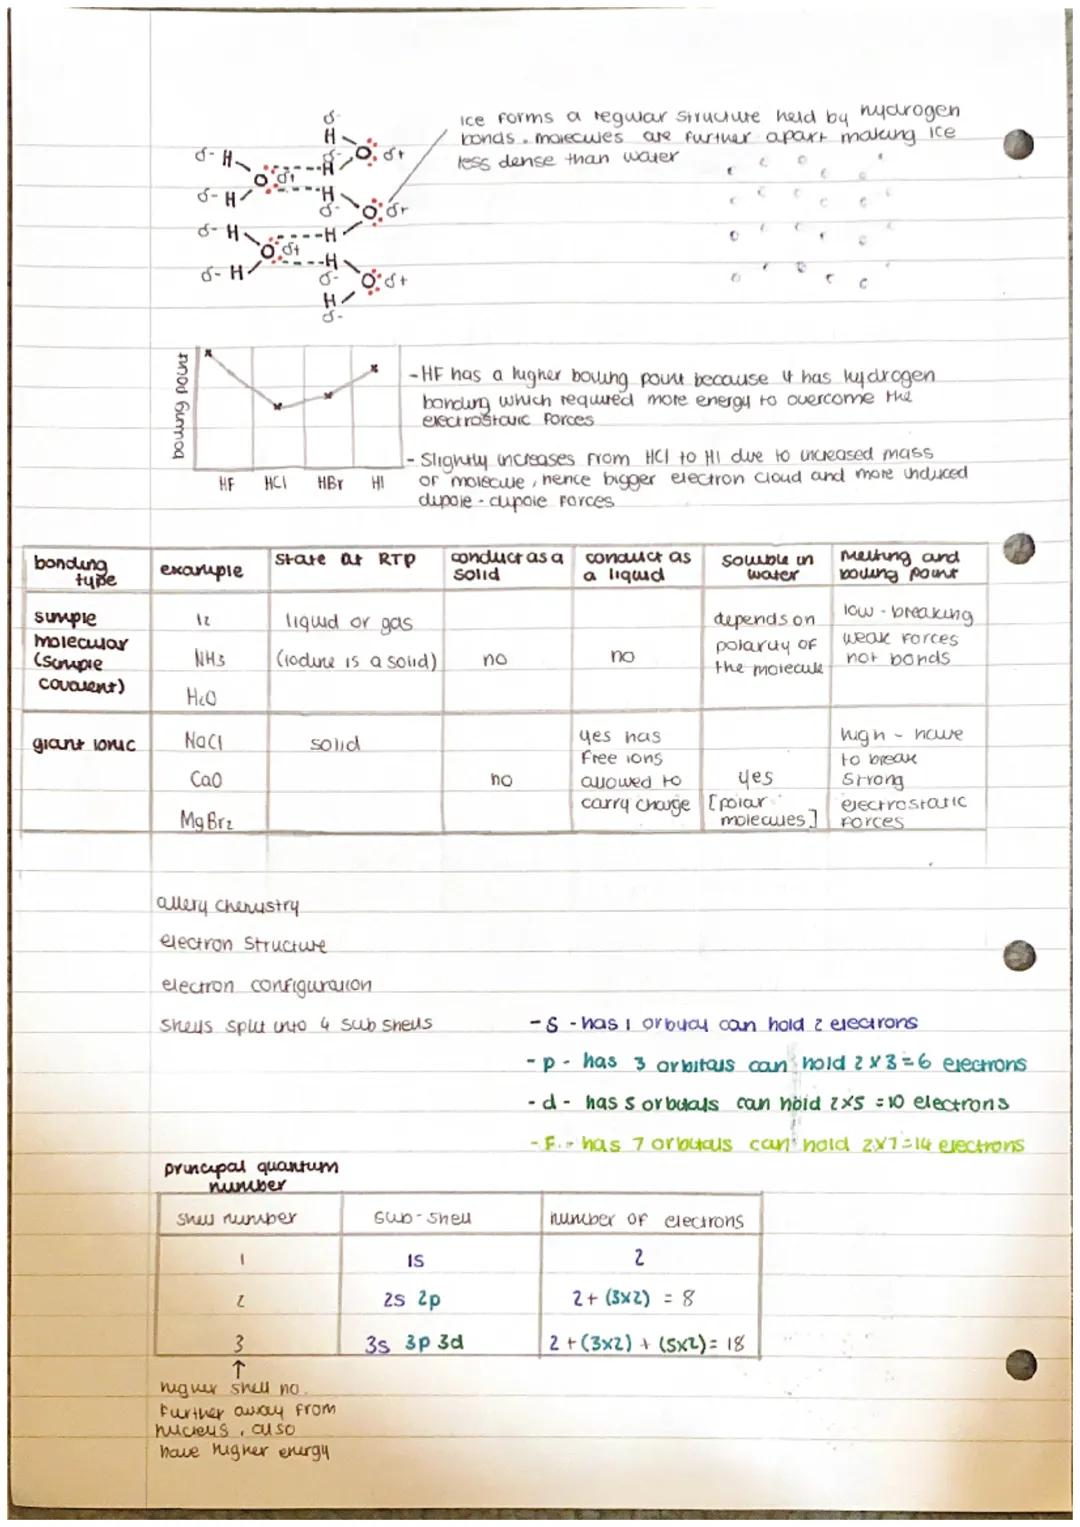 δ-
H
δ- H
δ- O δ+
H
O δ+
δ- H
H
δ- O δ+
δ- H
H
O δ+
H
δ- H
δ- O δ+
H
δ-
ice forms a regular structure held by hydrogen
bonds. molecules are further apart making ice
less dense than water
boiling point
HF HCl HBr HI
-HF has a higher boiling point because it has hydrogen
bonding which required more energy to overcome the
electrostatic forces
- Slightly increases from HCl to HI due to increased mass
of molecule, hence bigger electron cloud and more induced
dipole-dipole forces
bonding type | example | state at RTP | conduct as a solid | conduct as a liquid | soluble in water | melting and boiling point
simple molecular (simple covalent) | I2 NH3 H2O | liquid or gas (iodine is a solid) | no | no | depends on polarity of the molecule | low - breaking weak forces not bonds
giant ionic | NaCl CaO MgBr2 | solid | no | yes has free ions allowed to carry charge | yes [polar molecules] | high - have to break strong electrostatic forces
allery chemistry
electron structure
electron configuration
shells split into 4 sub shells
-S - has 1 orbital can hold 2 electrons
-p - has 3 orbitals can hold 2x3=6 electrons
-d - has 5 orbitals can hold 2x5=10 electrons
-F - has 7 orbitals can hold 2x7=14 electrons
principal quantum
number
shell number | sub-shell | number of electrons
1 | 1s | 2
2 | 2s 2p | 2+ (3x2) = 8
3 | 3s 3p 3d | 2+(3x2) + (5x2)= 18
↑
higher shell no.
further away from
nucleus, also
have higher energy